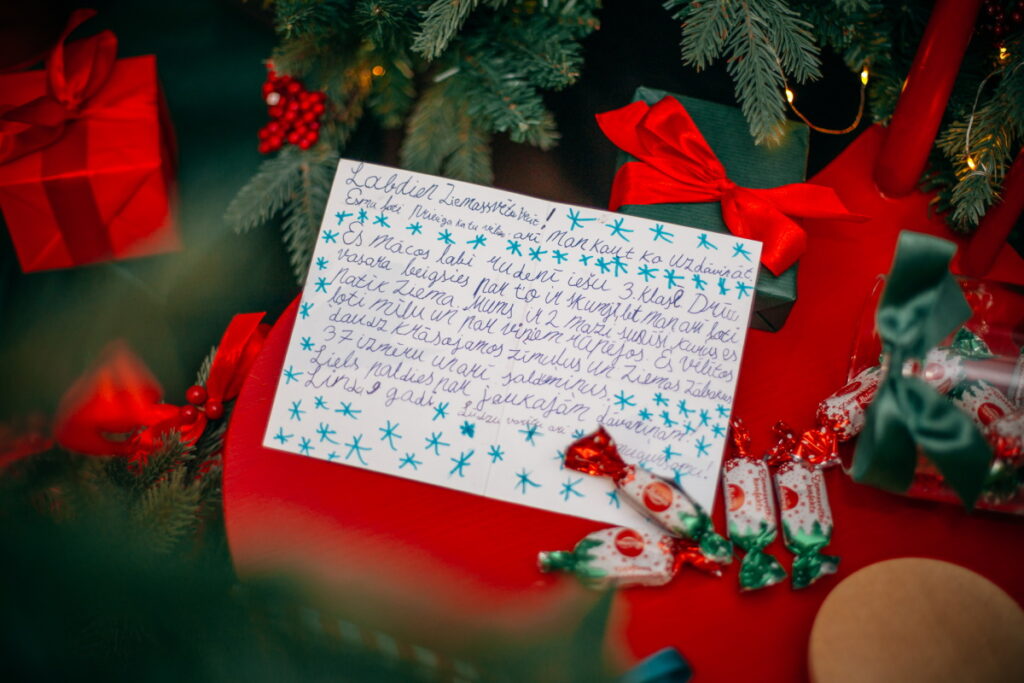 Labdien Ziemassvētku vecīt!
Esmu ļoti priecīga ka tu vēlies arī Man kaut ko uzdāvināt
Es mācos labi rudenī iešu 3. klasē Drīz
vasara beigsies par to ir skumji, bet man arī ļoti
Patīk Ziema. Mums ir 2 mazi sunīši kurus es
ļoti mīlu un par viņiem rūpējos. Es vēlētos
daudz krāsainos zīmuļus un Ziemas zābakus
37 izmēru un arī saldumiņus.
Liels paldies par jaukajām dāvaniņām.
9 gadi.